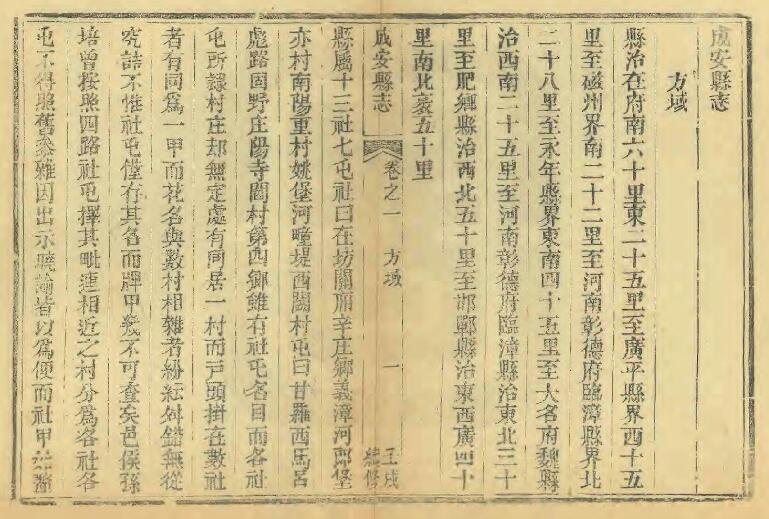 成安縣志
方域
縣治在府南六十里東二十五里至廣平縣界西十五
里至磁州界南二十二里至河南彰德府臨漳縣界北
二十八里至永年縣界東南四十五里至大名府魏縣
治西南二十五里至河南彰德府臨漳縣治東北三十
里至肥鄉縣治西北五十里至邯鄲縣治東西廣四十
里南北袤五十里
成安縣志 卷之一 方域 一 壬戌續修
縣屬十三社七屯社曰在坊關廂辛庄鄉義漳河郎堡
亦村南陽重村姚堡河疃堤西閻村屯曰甘羅西馬呂
彪路固野庄陽寺閻村第四鄉雖有社屯名目而各社
屯所隸村庄却無定處有同居一村而戸頭掛在數社
者有同爲一甲而花名與數村相雜者紛紜舛錯無從
究詰不惟社屯僅存其名而牌甲幾不可查矣邑侯孫
培曾按照四路社屯擇其毗連相近之村分爲各社各
屯不得照舊參雜因出示曉諭皆以爲便而社甲